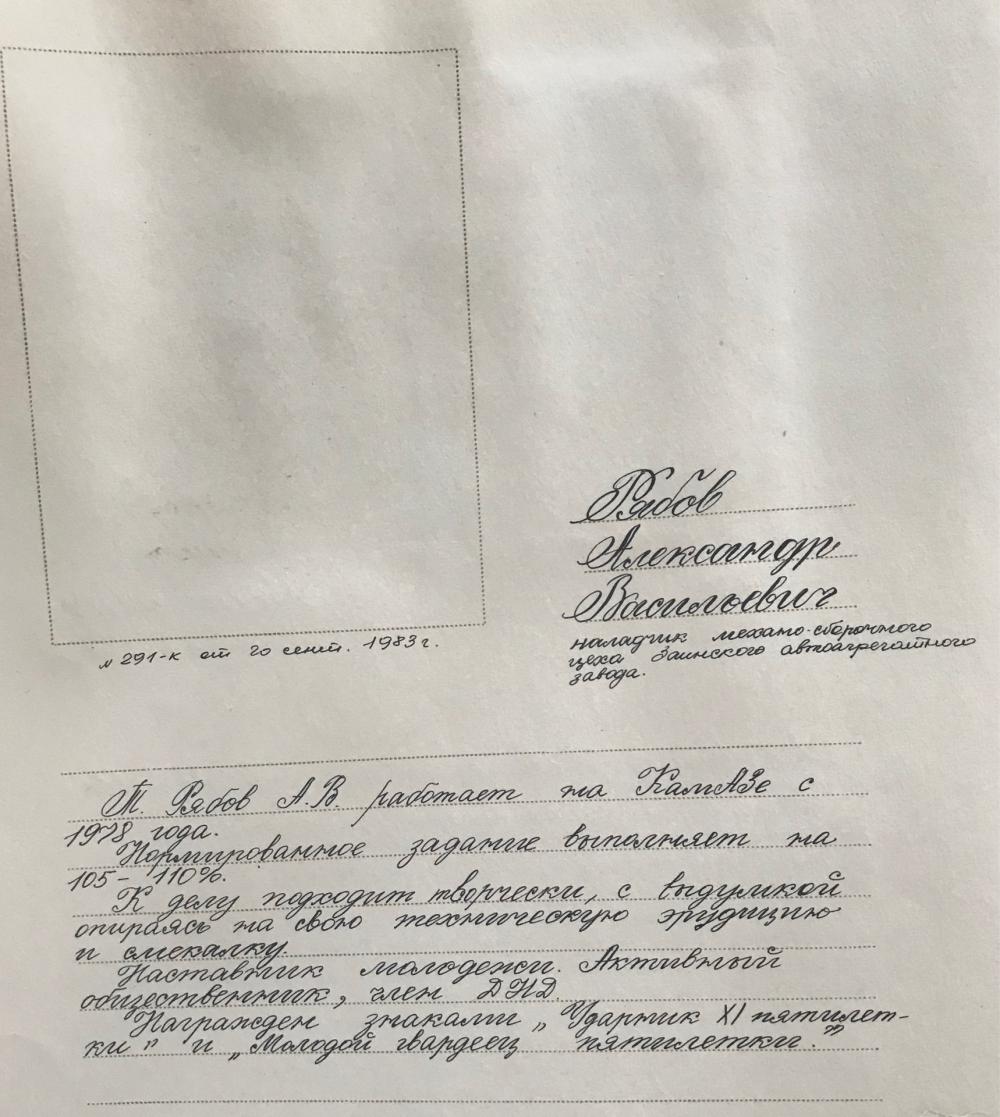 Рябов
Александр
Васильевич
наладчик механо-сборочного
цеха Заинского автоагрегатного
завода.
№ 291-к от 20 сент. 1983 г.
Т. Рябов А.В. работает на КамАЗе с
1978 года.
Нормированное задание выполняет на
105 - 110%.
К делу подходит творчески, с выдумкой
опираясь на свою техническую эрудицию
и смекалку.
Наставник молодежи. Активный
общественник, член ДНД.
Награжден знаками „Ударник XI пятилет-
ки” и „Молодой гвардеец пятилетки.”